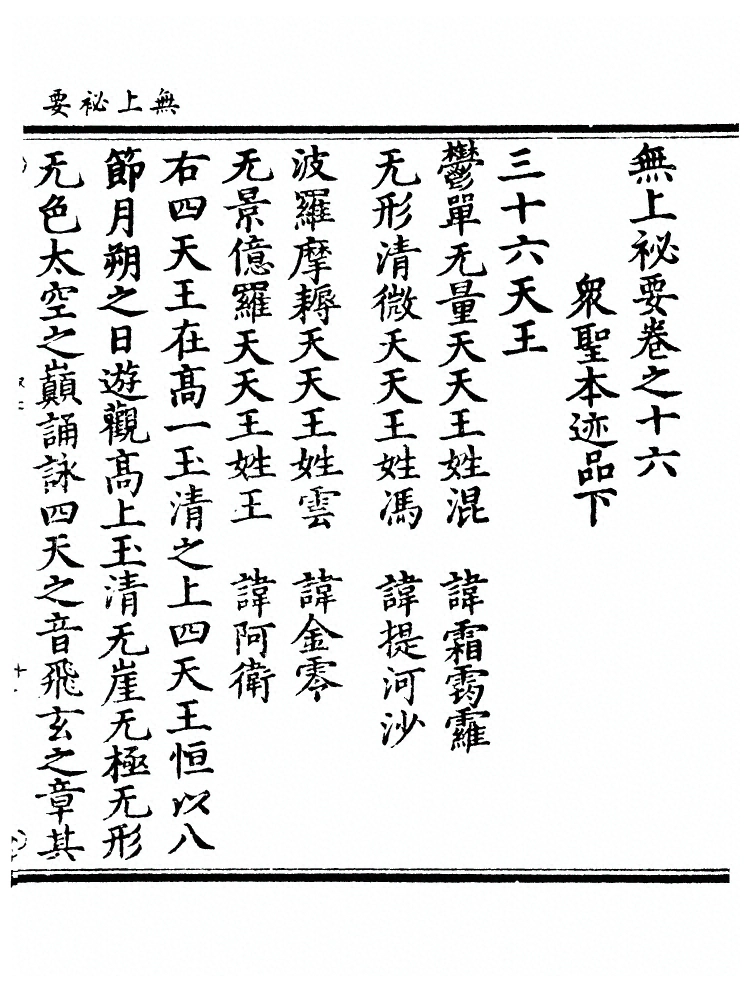 無上祕要
無上祕要卷之十六
衆聖本迹品下
三十六天王
鬱單无量天天王姓混 諱霜霭䨥
无形清微天天王姓馮 諱提河沙
波羅摩耨天天王姓雲 諱金零
无景億羅天天王姓王 諱阿衛
右四天王在髙一玉清之上四天王恒以八
節月朔之日遊觀髙上玉清无崖无極无形
无色太空之巔誦詠四天之音飛玄之章其